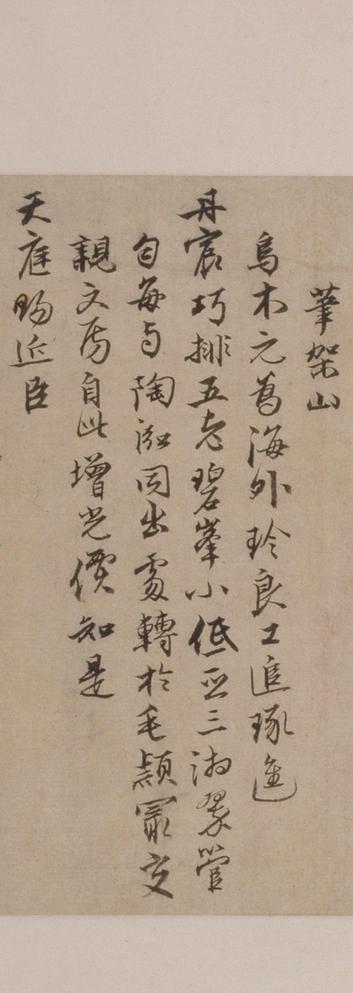 筆架山
烏木元為海外珍良工追琢進
丹宸巧排五老碧峯小低亞三湘翠管
勻每与陶泓同出處轉於毛穎冣交
親文房自此增光價知是
天庭賜近臣